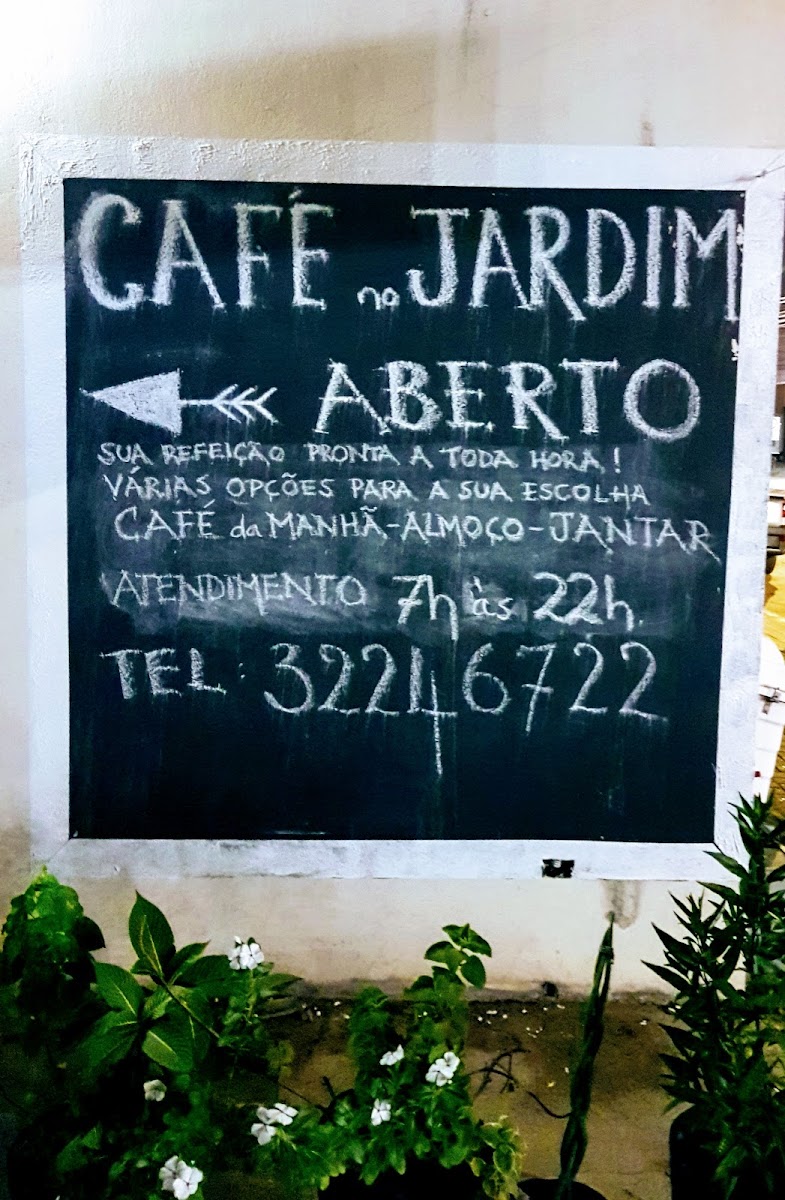 CAFÉ no JARDIM
ABERTO
SUA REFEIÇÃO PRONTA A TODA HORA!
VÁRIAS OPÇÕES PARA A SUA ESCOLHA
CAFÉ da MANHÃ-ALMOÇO-JANTAR
ATENDIMENTO 7h às 22h.
TEL: 32246722